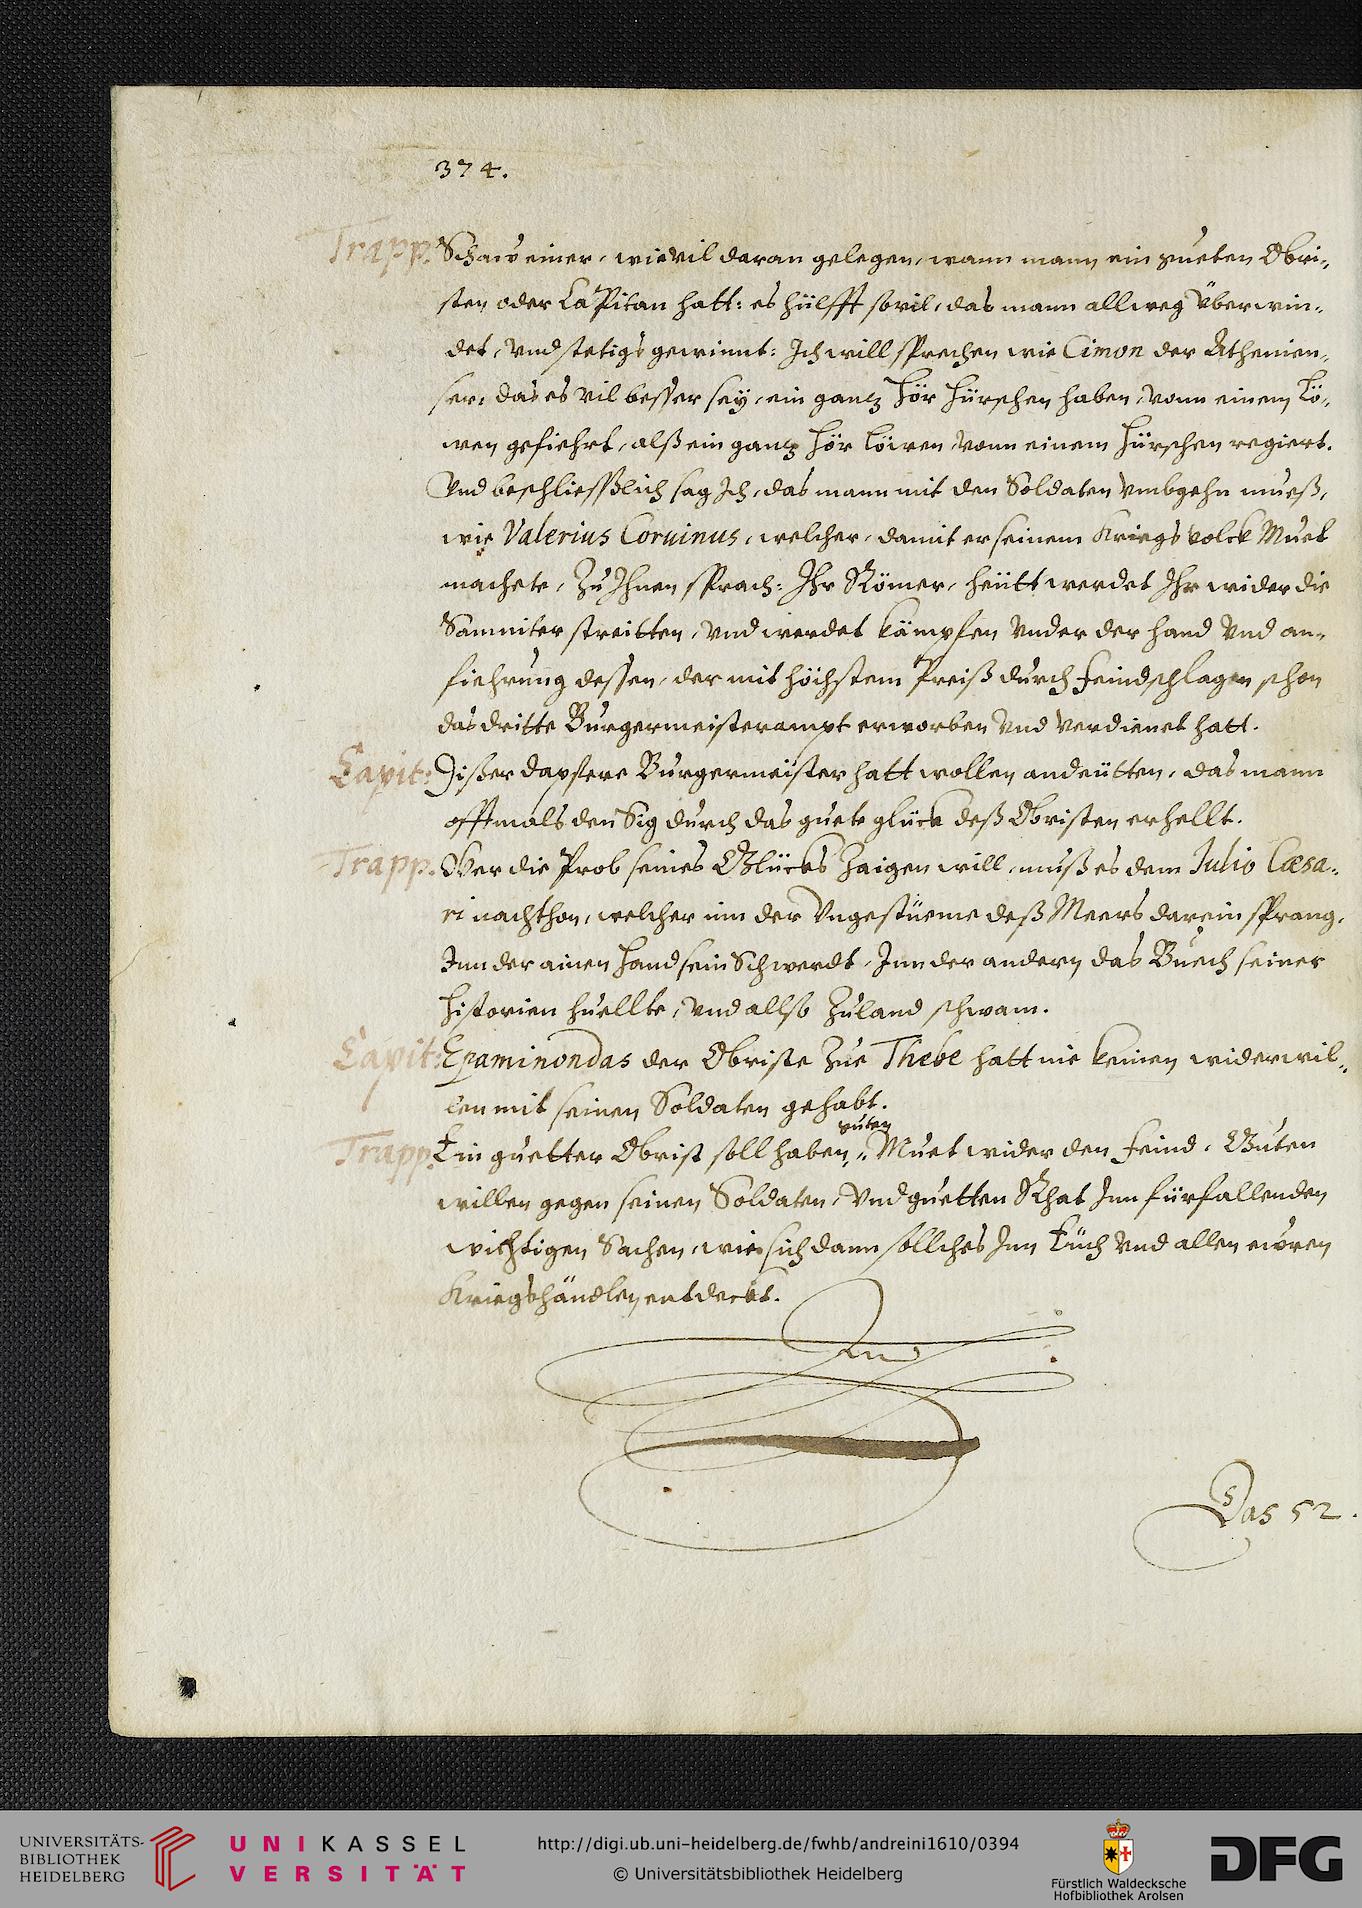 374.
Trapp. Schaw einer, wie vil daran gelegen, wann mann ein gueten Obri-
sten oder Capitan hatt: es hülfft sovil, das mann allweg überwin-
det, vnd stetigs gewinnt: Ich will sprechen wie Cimon der Athenien-
ser, das es vil besser sey, ein gantz hör hürschen haben, vonn einem Lö-
wen gefiehrt, alß ein gantz hör löwen vonn einem hürschen regiert.
Vnd beschließlich sag Ich, das mann mit den Soldaten vmbgehn mueß,
wie Valerius Coruinus, welcher, damit er seinem Kriegs volck Muet
machete, Zu Ihnen sprach: Ihr Römer, heütt werdet Ihr wider die
Samniter streitten, vnd werdet kämpfen vnder der hand vnd an-
fiehrung dessen, der mit höchstem Preiß durch feindschlagen schon
das dritte Burgermeisterampt erworben vnd verdienet hatt.
Capit: Dißer dapfere Burgermeister hatt wollen andeütten, das mann
offtmals den Sig durch das guete glück deß Obristen erhellt.
Trapp. Wer die Prob seines Glücks Zaigen will, muß es dem Iulio Cæsa-
ri nachthon, welcher inn der Vngestüeme deß Meers darein sprang,
Inn der ainen hand sein Schwerdt, Inn der andern das Buech seiner
historien huellte, vnd allso Zuland schwam.
Capit: Epaminondas der Obriste Zue Thebe hatt nie keinen widerwil-
len mit seinen Soldaten gehabt.
guten
Trapp. Ein guetter Obrist soll haben, Muet wider den feind, Guten
willen gegen seinen Soldaten, vnd guetten Rhat Inn fürfallenden
wichtigen Sachen, wie sich dann sollches Inn Eüch vnd allen ewren
Kriegshändlen entdeckt.
End
Das 52.
UNIVERSITÄTS-
BIBLIOTHEK
HEIDELBERG
UNIKASSEL
VERSITÄT
http://digi.ub.uni-heidelberg.de/fwhb/andreini1610/0394
© Universitätsbibliothek Heidelberg
Fürstlich Waldecksche
Hofbibliothek Arolsen
DFG